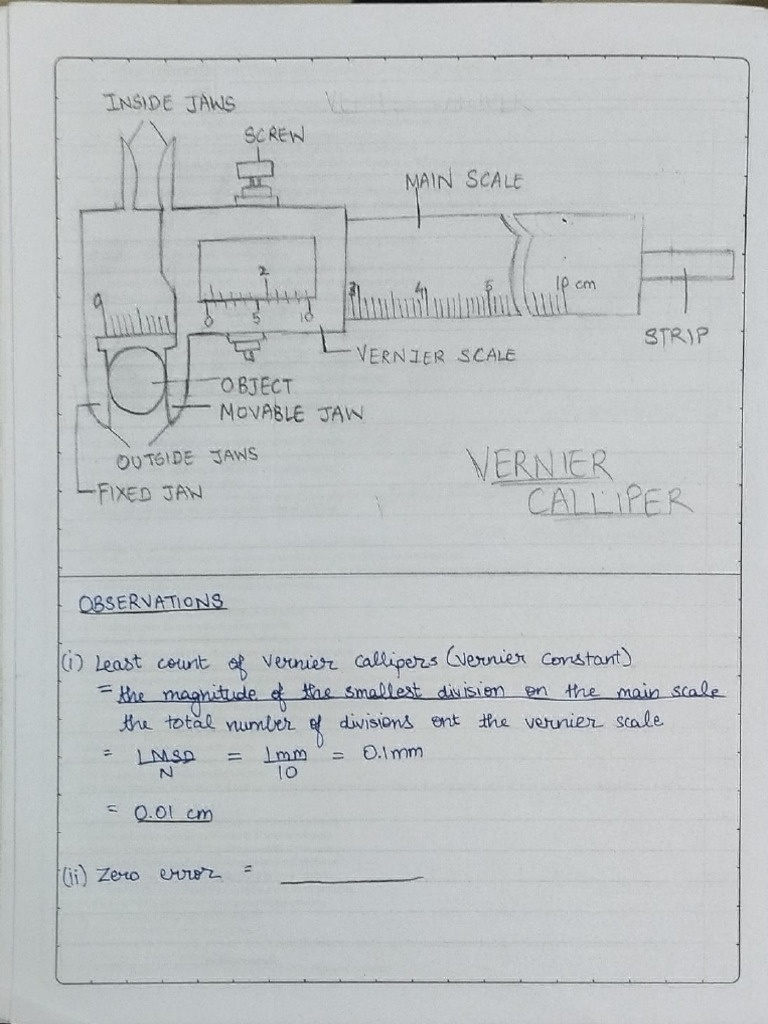 INSIDE JAWS
SCREW
MAIN SCALE
2
9
3
4
5
10 cm
0
5
10
STRIP
VERNIER SCALE
OBJECT
MOVABLE JAW
OUTSIDE JAWS
FIXED JAW
VERNIER
CALLIPER
OBSERVATIONS
(i) Least count of vernier callipers (vernier constant)
= the magnitude of the smallest division on the main scale
the total number of divisions ont the vernier scale
= 1 MSD / N = 1mm / 10 = 0.1mm
= 0.01 cm
(ii) Zero error =